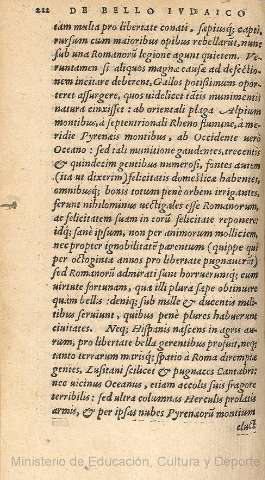 222 DE BELLO IVDAICO
tam multa pro libertate conati, sæpiusq; capti,
rursum cum maioribus opibus rebellarūt, nunc
sub una Romanorū legione agunt quietem. Ve-
runtamen si aliquos magnæ causæ ad defectio-
nem incitare deberent, Gallos potissimum opor-
teret assurgere, quos uidelicet talis munimentis
natura cinxisset: ab orientali plaga Alpium
montibus, a septentrionali Rheno flumine, a me-
ridie Pyrenæis montibus, ab Occidente uerò
Oceano: sed tali munitione gaudentes, trecentis
& quindecim gentibus numerosi, fontes autem
(ita ut dixerim) felicitatis domesticæ habentes,
omnibusq; bonis totum penè orbem irrigantes,
ferunt nihilominus uectigales esse Romanorum,
ac felicitatem suam in eorū felicitate reponere:
idq; sanè ipsum, non per animorum molliciem,
nec propter ignobilitatē parentum (quippe qui
per octoginta annos pro libertate pugnauerūt)
sed Romanorū admirati sunt horrueruntq; cum
uirtute fortunam, qua illi plura sæpe obtinuere
quàm bella: deniq; sub mille & ducentis mili-
tibus seruiunt, quibus penè plures habuerunt
ciuitates. Neq; Hispanis nascens in agris au-
rum, pro libertate bella gerentibus profuit, neq;
tanto terrarum marisq; spatio à Roma diremptæ
gentes, Lusitani scilicet & pugnaces Cantabri:
nec uicinus Oceanus, etiam accolis suis fragore
terribilis: sed ultra columnas Herculis prolatis
armis, & per ipsas nubes Pyrenæorū montium
eluct
Ministerio de Educación, Cultura y Deporte